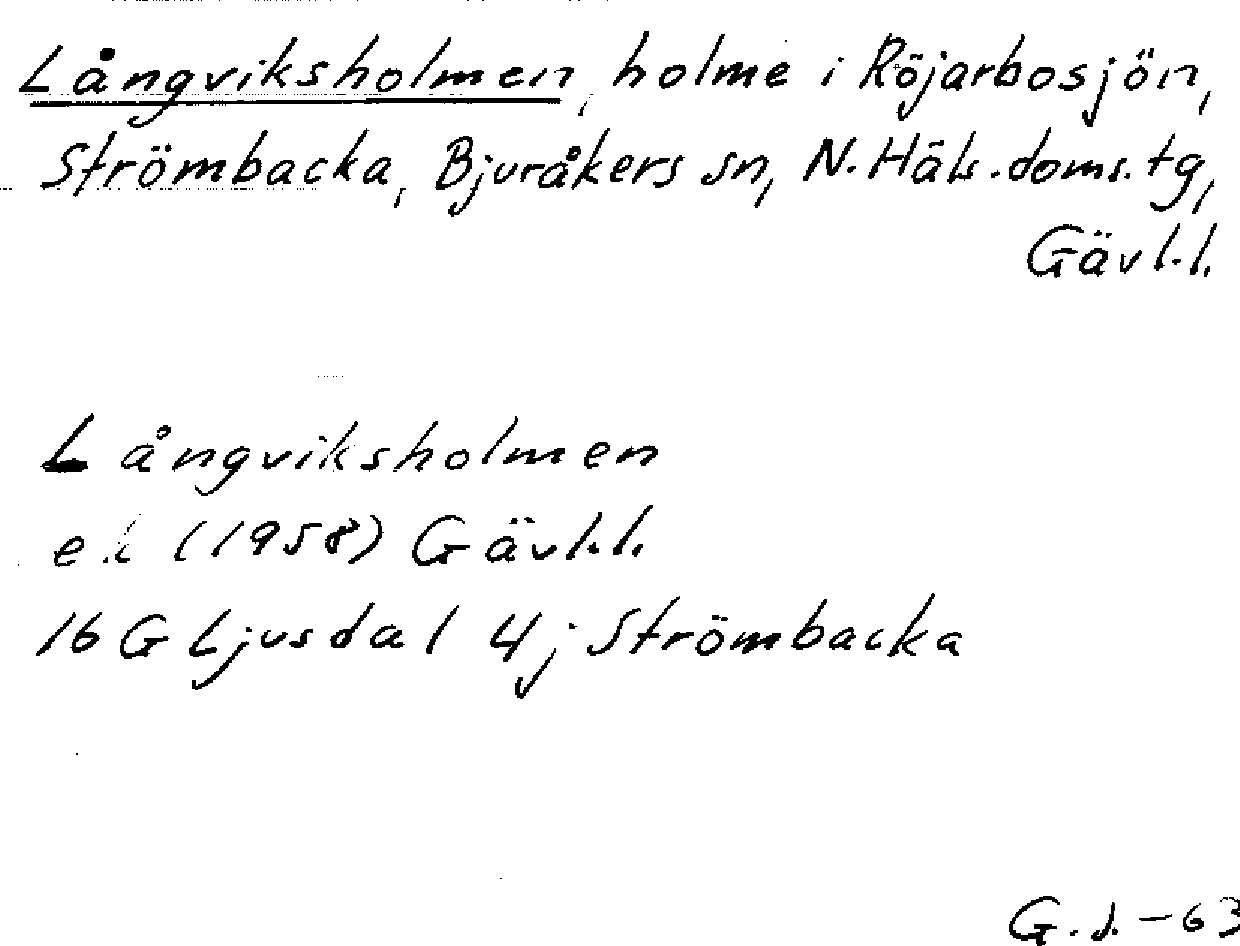 Långviksholmen, holme i Röjarbosjön,
Strömbacka, Bjuråkers sn, N. Häls. doms. tg,
Gävl.l.
Långviksholmen
e.k (1958) Gävl.l.
16 G Ljusdal 4j Strömbacka
G.J. -63